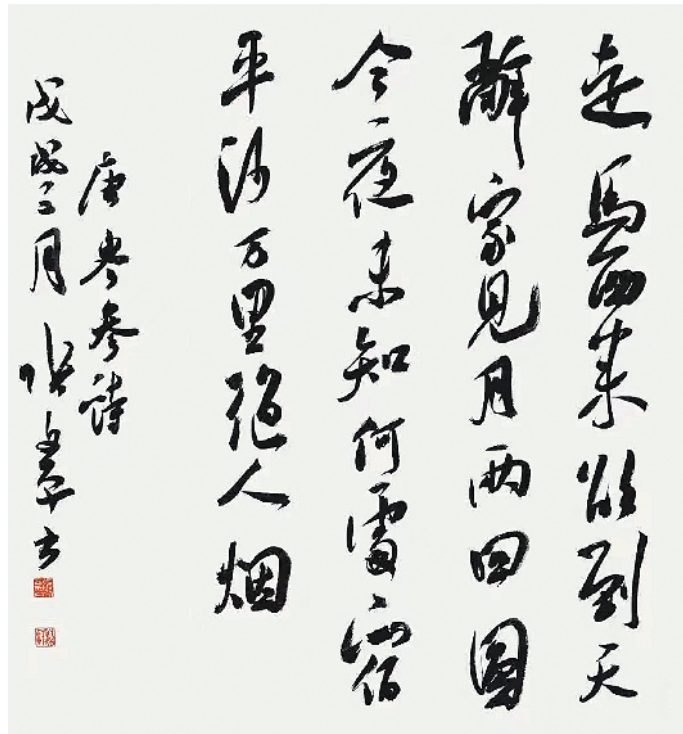 走馬西来欲到天
辭家見月两回圓
今夜未知何處宿
平沙万里絶人烟
唐岑参詩
戊戌三月 书